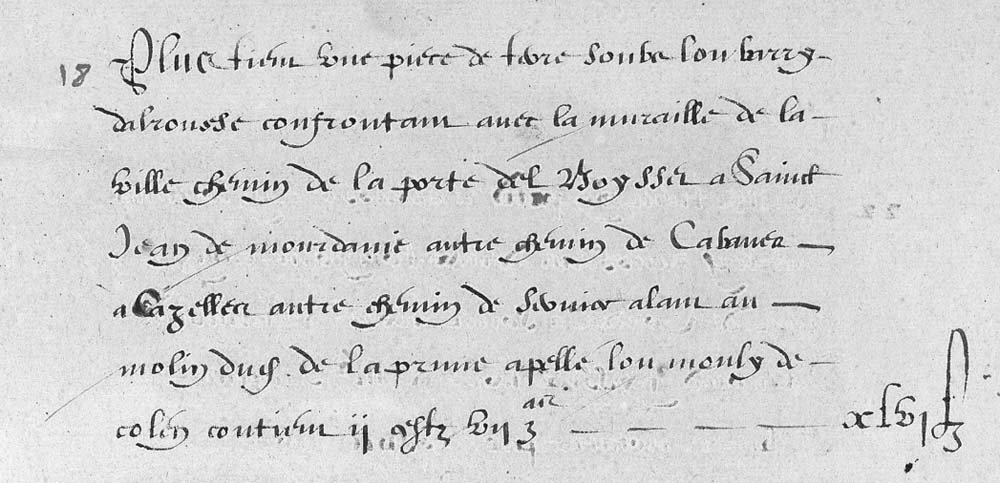 18 Plus tient une piece de terre soubz lou barry
dalrousse confrontant avec la muraille de la
ville chemin de la porte del Boysset a Sainct
Jean de mourdanie autre chemin de Cabanes
a Cazelles autre chemin de alant au
molin duch de la prune apelle lou mouly de
colen contient ij vij xlvij